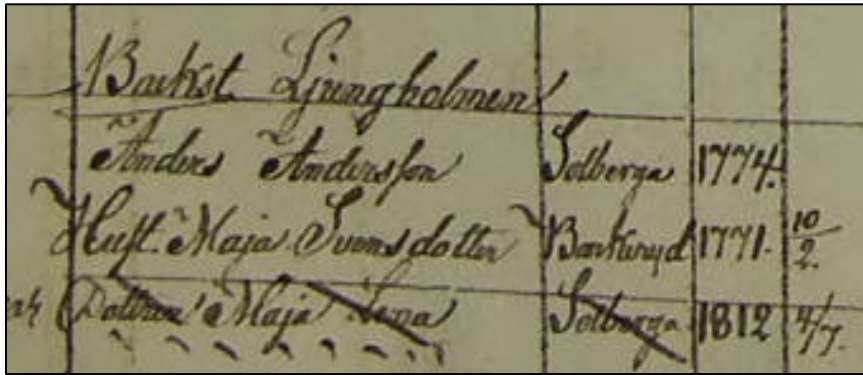 Backst. Ljungholmen
Anders Andersson Solberga 1774.
Hust. Maja Svensdotter Barkeryd 1771. 10/2.
Dottren Maja Lena Solberga 1812 4/7.